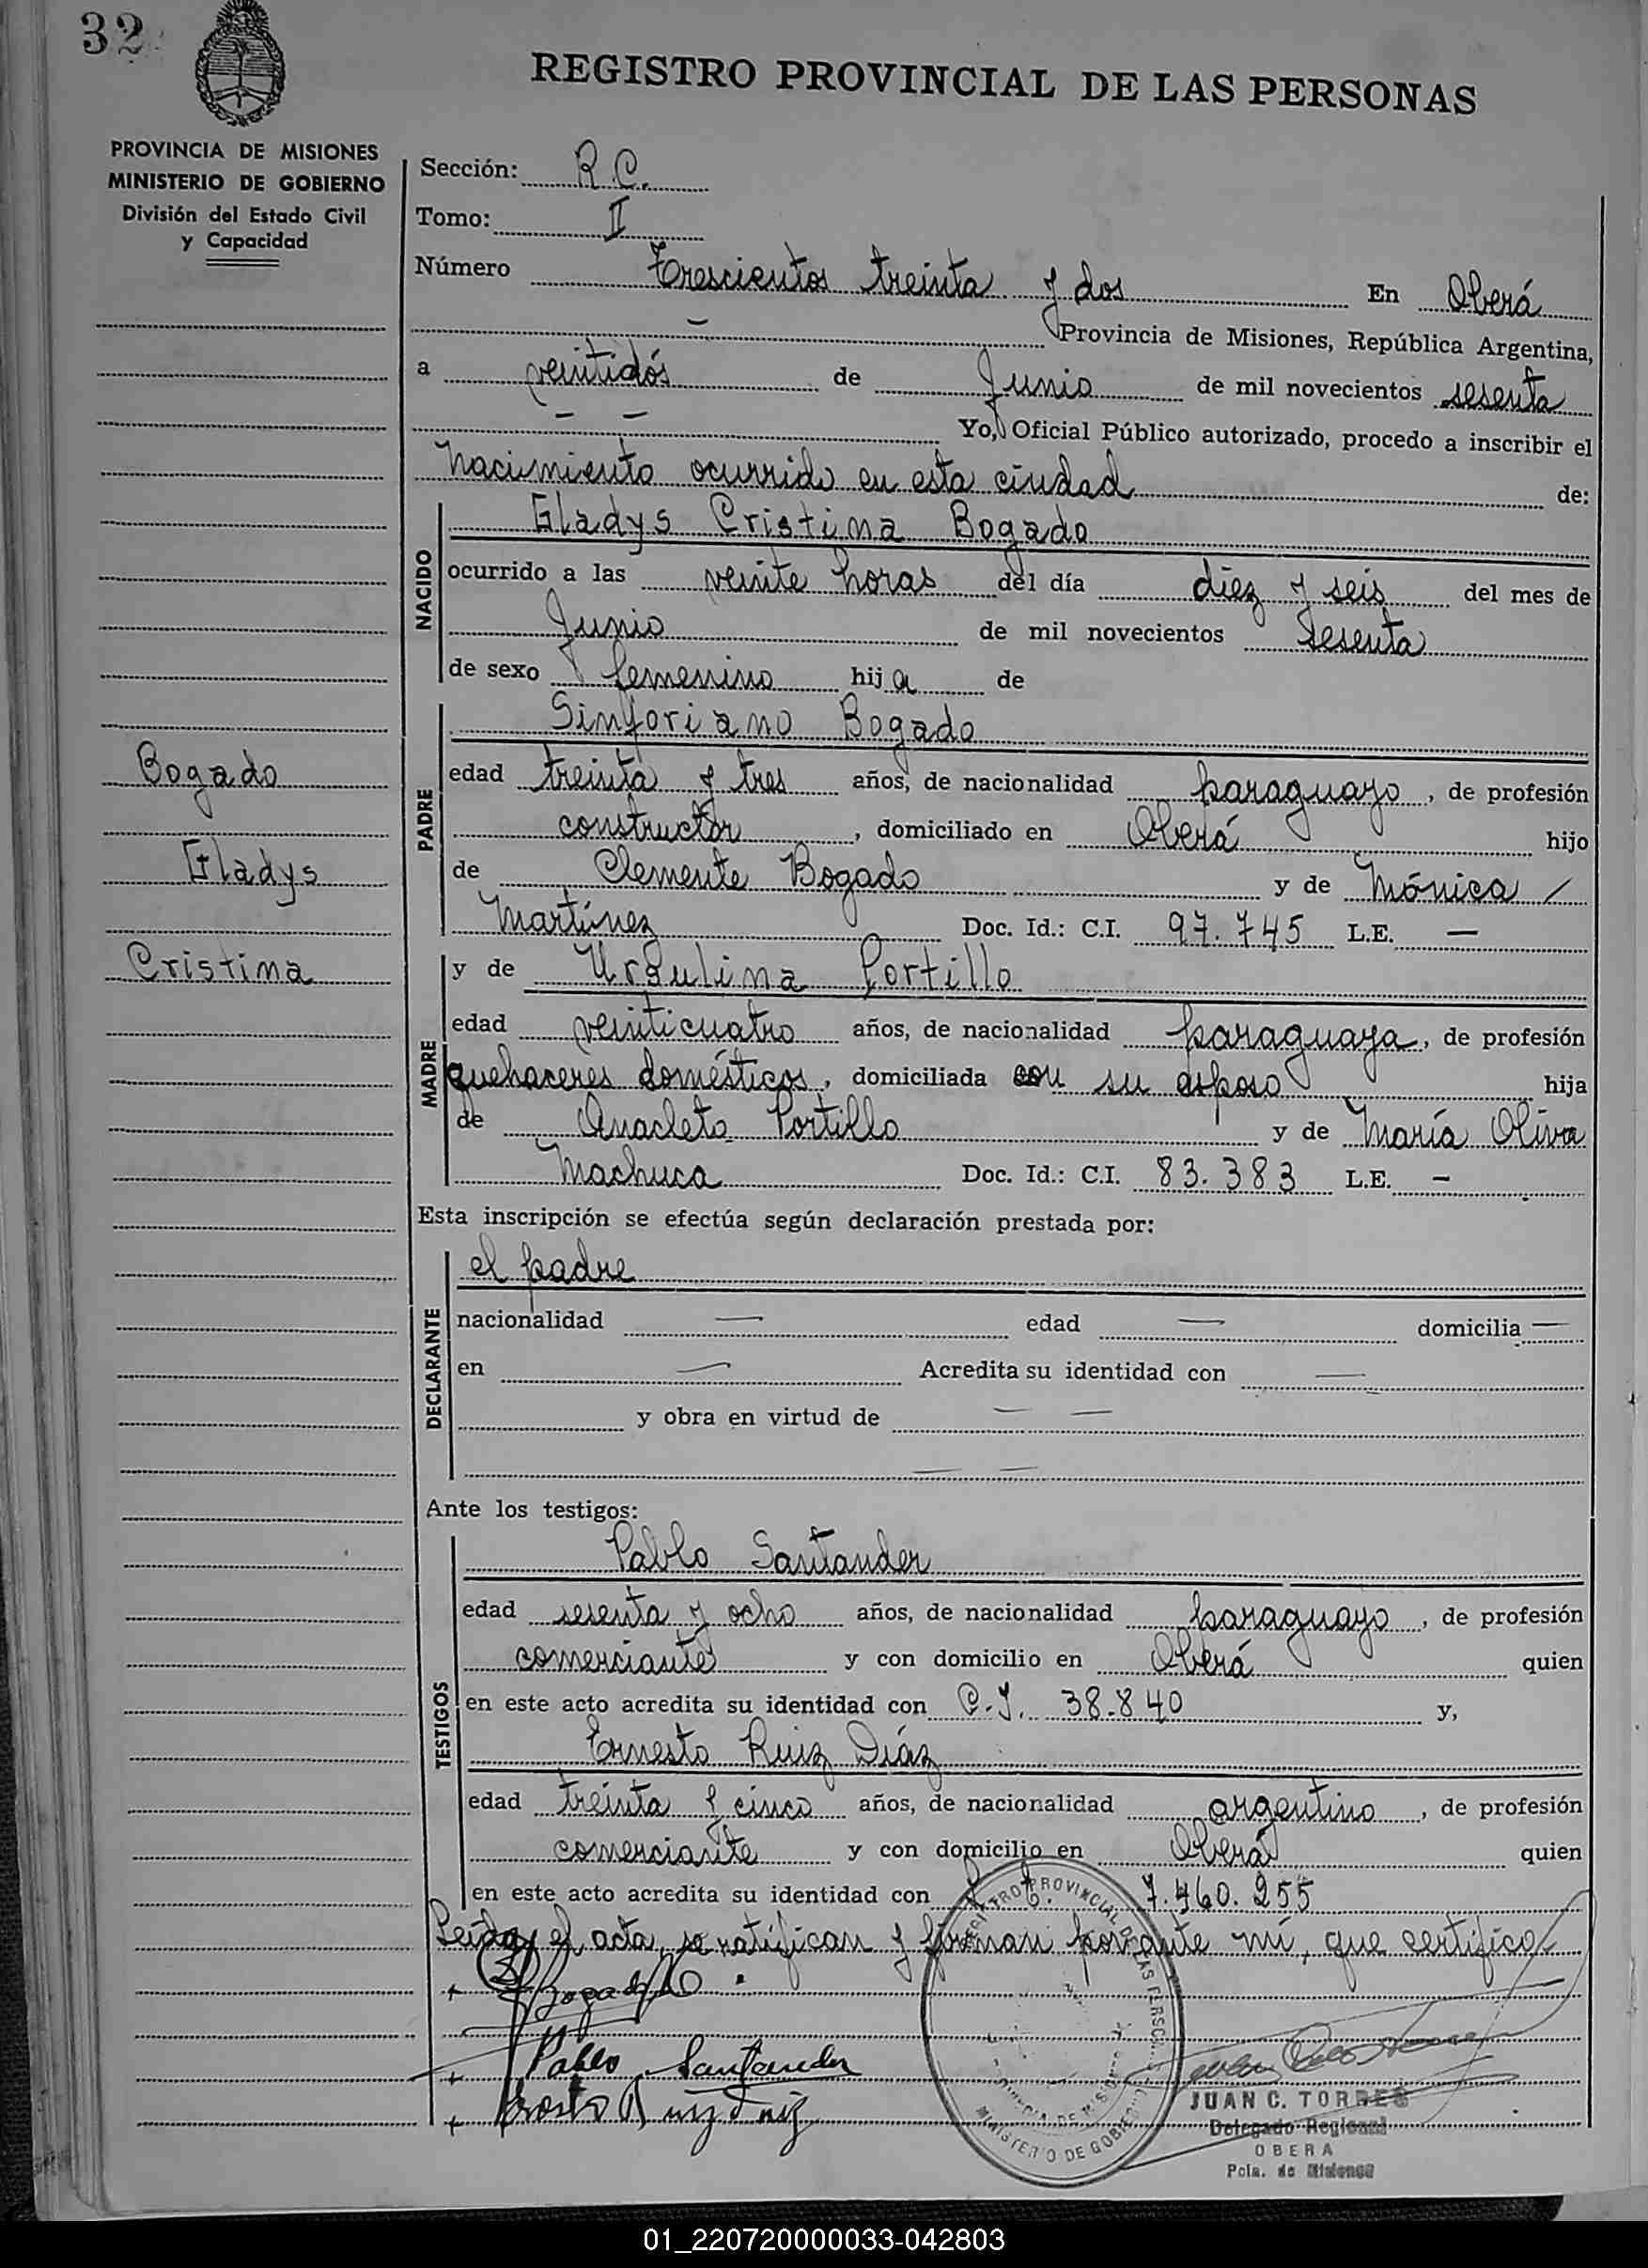 32
REGISTRO PROVINCIAL DE LAS PERSONAS
PROVINCIA DE MISIONES
MINISTERIO DE GOBIERNO
División del Estado Civil
y Capacidad
Sección: R.C.
Tomo: II
Número Trescientos treinta y dos En Oberá
Provincia de Misiones, República Argentina,
a veintidós de Junio de mil novecientos sesenta
Yo, Oficial Público autorizado, procedo a inscribir el
nacimiento ocurrido en esta ciudad de:
NACIDO
Gladys Cristina Bogado
ocurrido a las veinte horas del día diez y seis del mes de
Junio de mil novecientos sesenta
de sexo femenino hija de
PADRE
Sinforiano Bogado
edad treinta y tres años, de nacionalidad paraguayo, de profesión
constructor, domiciliado en Oberá hijo
de Clemente Bogado y de Mónica /
Martínez Doc. Id.: C.I. 97.745 L.E. —
Bogado
Gladys
Cristina
MADRE
y de Ursulina Portillo
edad veinticuatro años, de nacionalidad paraguaya, de profesión
quehaceres domésticos, domiciliada con su esposo hija
de Anacleto Portillo y de María Oliva
Machuca Doc. Id.: C.I. 83.383 L.E. —
Esta inscripción se efectúa según declaración prestada por:
DECLARANTE
el padre
nacionalidad — edad — domicilia —
en — Acredita su identidad con —
y obra en virtud de — —
— —
Ante los testigos:
TESTIGOS
Pablo Santander
edad sesenta y ocho años, de nacionalidad paraguayo, de profesión
comerciante y con domicilio en Oberá quien
en este acto acredita su identidad con C.I. 38.840 y,
Ernesto Ruiz Díaz
edad treinta y cinco años, de nacionalidad argentino, de profesión
comerciante y con domicilio en Oberá quien
en este acto acredita su identidad con 7.460.255
Leída el acta, se ratifican y firman por ante mí, que certifico
Bogado
Pablo Santander
Ernesto Ruiz Diaz
REGISTRO PROVINCIAL DE LAS PERSONAS
PROVINCIA DE MISIONES
MINISTERIO DE GOBIERNO
JUAN C. TORRES
Delegado Regional
OBERA
Pcia. de Misiones
01_220720000033-042803